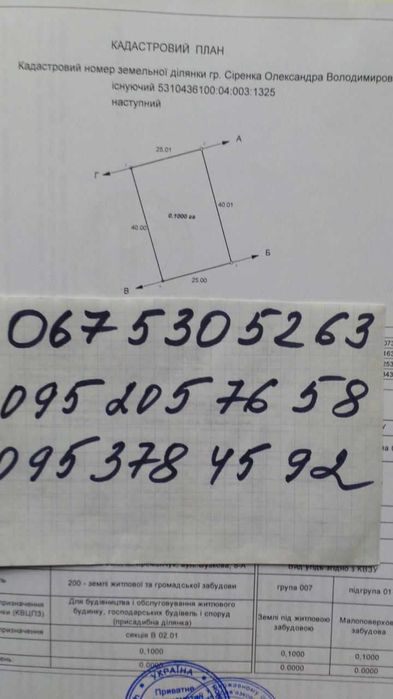 КАДАСТРОВИЙ ПЛАН
Кадастровий номер земельної ділянки гр. Сіренка Олександра Володимиров
існуючий 5310436100:04:003:1325
наступний
А
25.01
Г
40.01
0,1000 га
40.00
Б
25.00
В
067 530 52 63
095 205 76 58
095 378 45 92
200 - землі житлової та громадської забудови
група 007
підгрупа 01
призначення
(КВЦПЗ)
Для будівництва і обслуговування житлового
будинку, господарських будівель і споруд
(присадибна ділянка)
Землі під житловою
забудовою
Малоповерхов
забудова
призначення
секція В 02.01
0,1000
0,1000
0,1000
0.0000
0.0000
0.0000
УКРАЇНА
Приватне